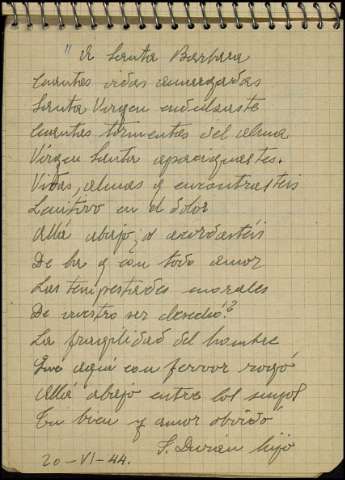 "A Santa Barbara
Cuantas vidas amargadas
Santa Virgen endulzaste
Cuantas tormentas del alma
Virgen Santa apaciguastes.
Vidas, almas y encontrasteis
Lenitivo en el dolor
Allá abajo, a
De fe y con todo amor
Las tempestades morales
De vuestro ser
La fragilidad del hombre
Que aquí con fervor rogó
Allá abajo entre los suyos
Tu bien y amor olvidó
S. Durién hijo
20-VI-44.